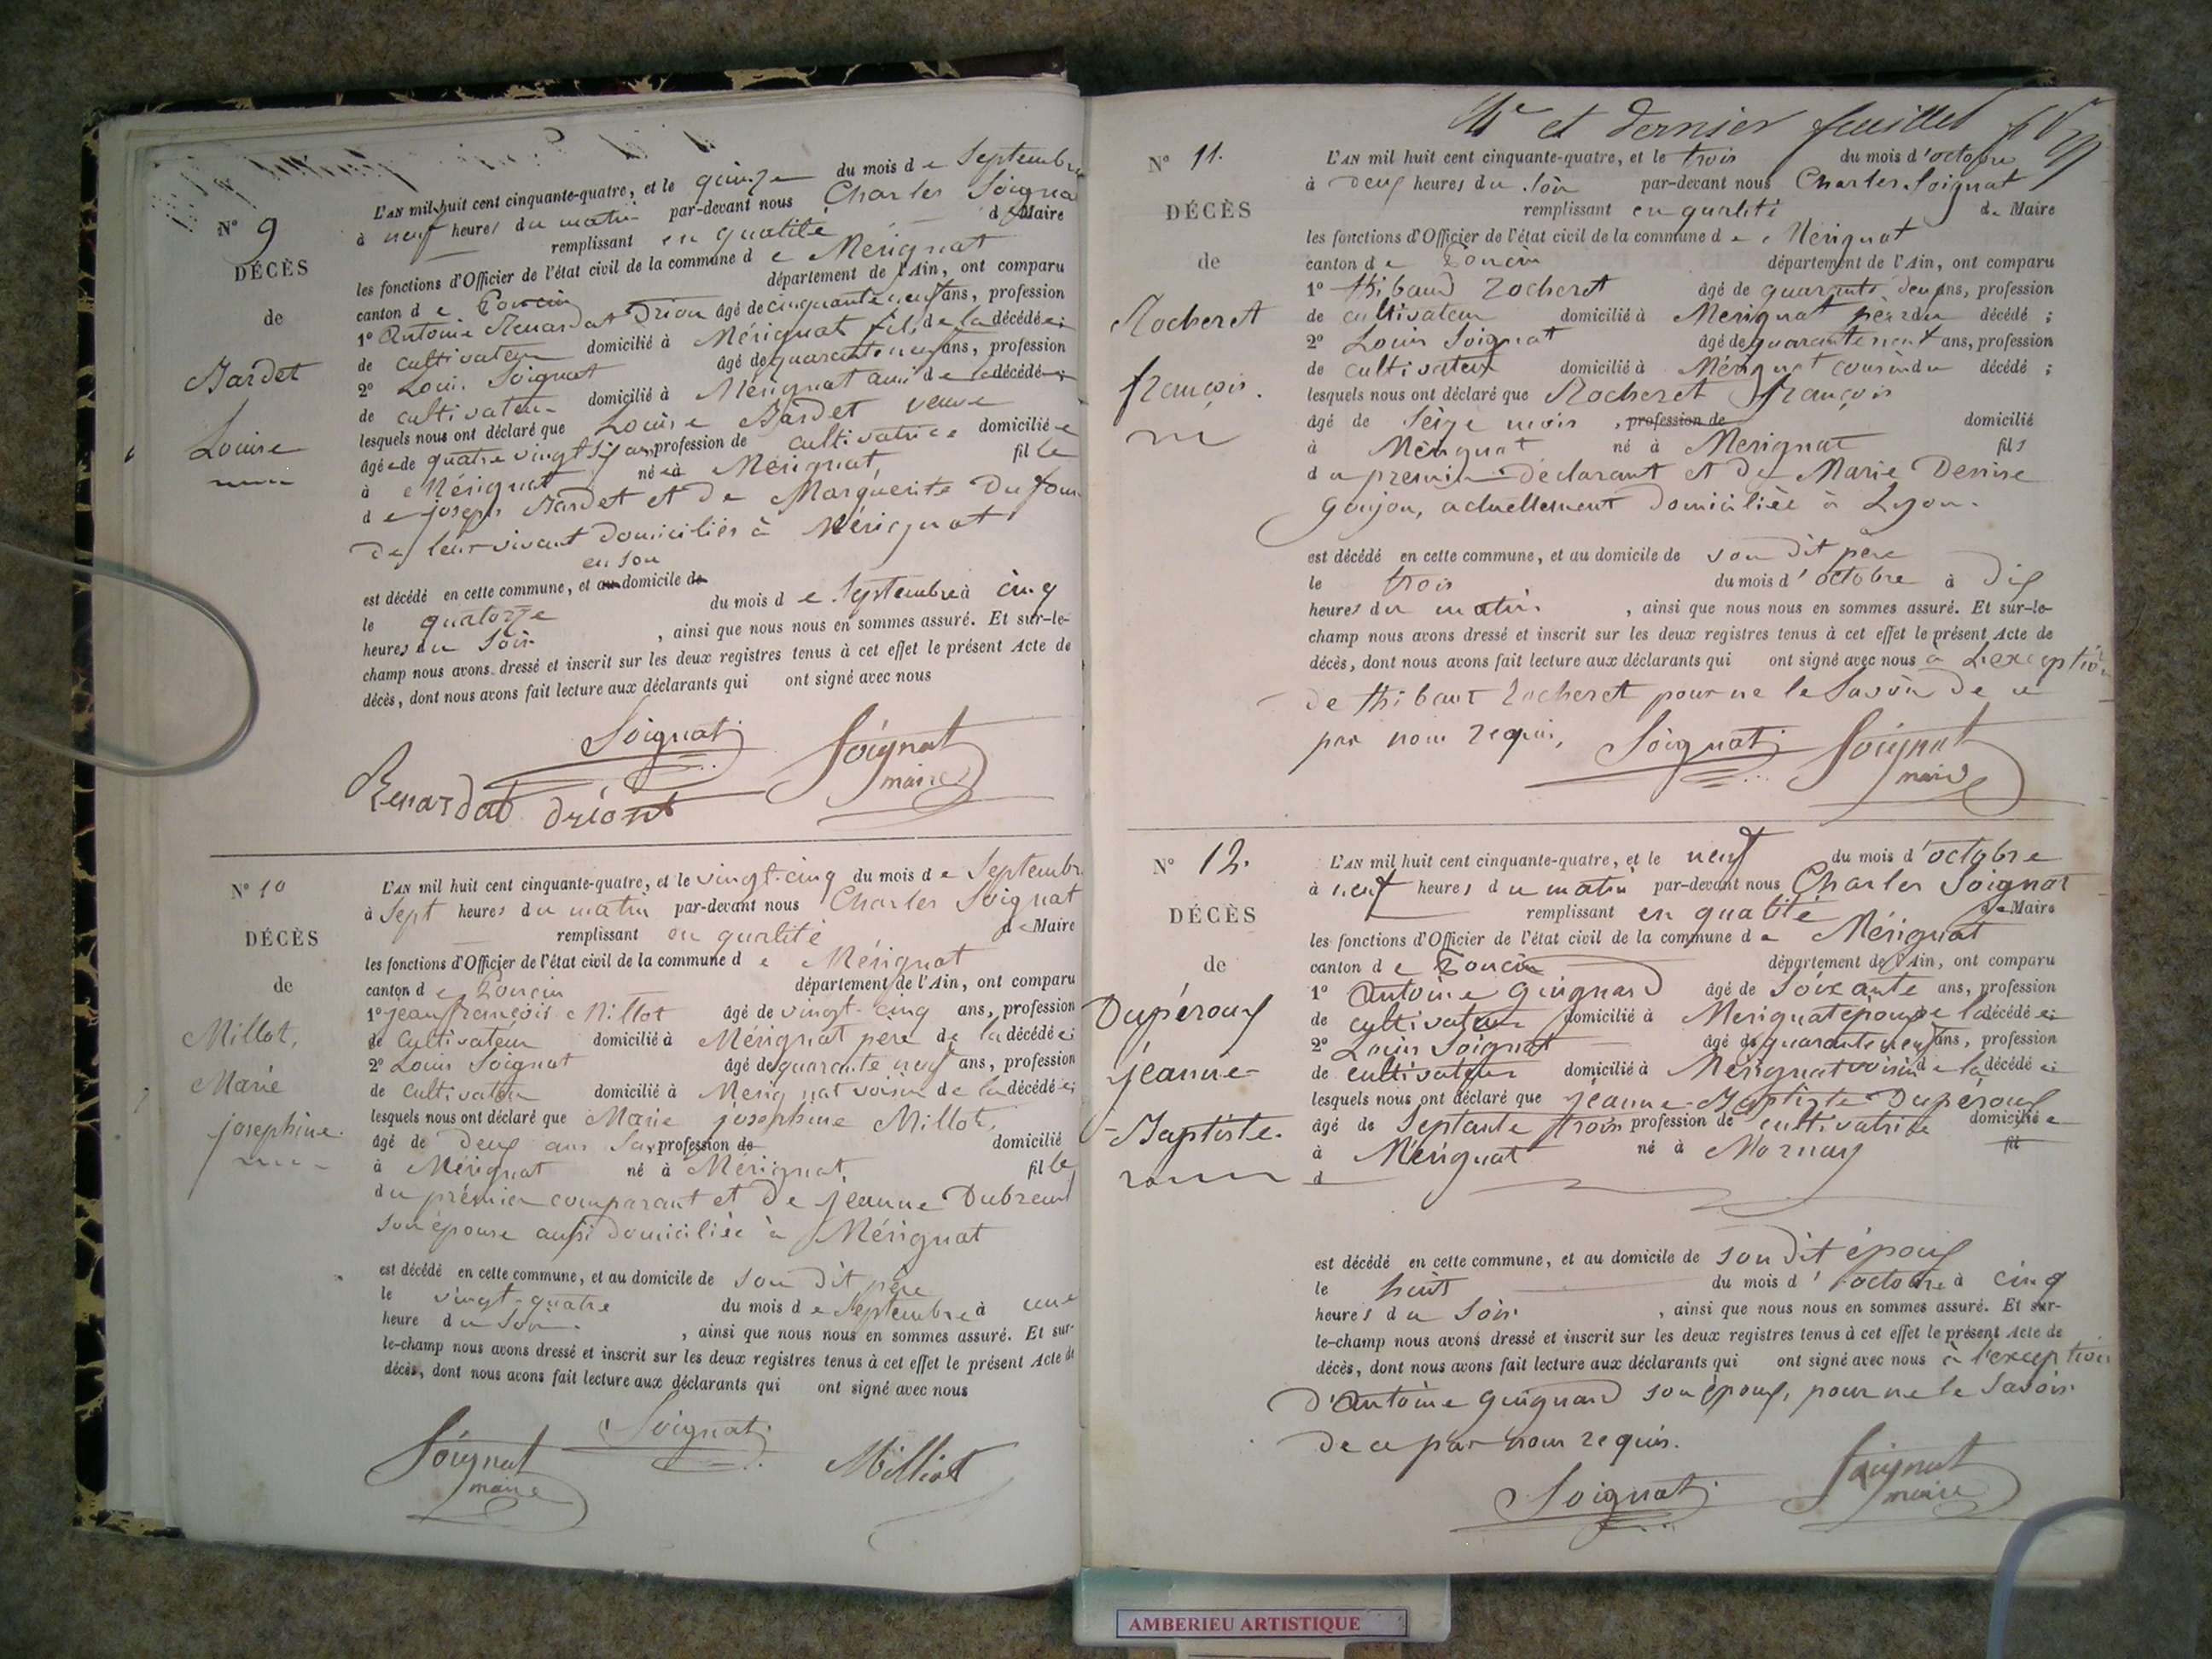 N° 9
DÉCÈS
de
Bardet
Louise
L'AN mil huit cent cinquante-quatre, et le quinze du mois de Septembre
à neuf heures du matin par-devant nous Charles Soignat
remplissant en qualité de Maire
les fonctions d'Officier de l'état civil de la commune de Mérignat
canton de Poncin département de l'Ain, ont comparu
1° Antoine Renardat Drion âgé de cinquante neuf ans, profession
de cultivateur domicilié à Mérignat fils de la décédée;
2° Louis Soignat âgé de quarante neuf ans, profession
de cultivateur domicilié à Mérignat ami de la décédée;
lesquels nous ont déclaré que Louise Bardet veuve
âgée de quatre vingt six ans, profession de cultivatrice domiciliée
à Mérignat née à Mérignat, fille
de joseph Bardet et de Marguerite Dufour
de leur vivant domiciliés à Mérignat
en son
est décédé en cette commune, et au domicile de
le quatorze du mois de Septembre à cinq
heures du Soir , ainsi que nous nous en sommes assuré. Et sur-le-
champ nous avons dressé et inscrit sur les deux registres tenus à cet effet le présent Acte de
décès, dont nous avons fait lecture aux déclarants qui ont signé avec nous
Soignat Soignat
maire
Renardat driont
N° 10
DÉCÈS
de
Millot,
Marie
josephine.
L'AN mil huit cent cinquante-quatre, et le vingt-cinq du mois de Septembr
à Sept heures du matin par-devant nous Charles Soignat
remplissant en qualité de Maire
les fonctions d'Officier de l'état civil de la commune de Mérignat
canton de Poncin département de l'Ain, ont comparu
1° jean françois Millot âgé de vingt-cinq ans, profession
de Cultivateur domicilié à Mérignat pere de la décédée;
2° Louis Soignat âgé de quarante neuf ans, profession
de Cultivateur domicilié à Merignat voisin de la décédée;
lesquels nous ont déclaré que Marie josephine Millot,
âgé de Deux ans profession de domicilié
à Mérignat né à Mérignat, fille
du prémier comparant et de jeanne Dubreuil
son épouse aussi domiciliée à Mérignat
est décédé en cette commune, et au domicile de son dit père
le vingt-quatre du mois de Septembre à une
heure du Soir. , ainsi que nous nous en sommes assuré. Et sur-
le-champ nous avons dressé et inscrit sur les deux registres tenus à cet effet le présent Acte de
décès, dont nous avons fait lecture aux déclarants qui ont signé avec nous
Soignat Soignat Milliot
maire
4e et dernier feuillet
N° 11.
DÉCÈS
de
Rocheret
françois.
L'AN mil huit cent cinquante-quatre, et le trois du mois d'octobre
à deux heures du Soir par-devant nous Charles Soignat
remplissant en qualité de Maire
les fonctions d'Officier de l'état civil de la commune de Mérignat
canton de Poncin département de l'Ain, ont comparu
1° thibaud Rocheret âgé de quarante deux ans, profession
de cultivateur domicilié à Merignat père du décédé ;
2° Louis Soignat âgé de quarante neuf ans, profession
de cultivateur domicilié à Mérignat cousin du décédé ;
lesquels nous ont déclaré que Rocheret françois
âgé de Seize mois , profession de domicilié
à Mérignat né à Merignat fils
du premier déclarant et de Marie Denise
Goujon, actuellement domiciliée à Lyon.
est décédé en cette commune, et au domicile de son dit père
le trois du mois d'octobre à Dix
heures du matin , ainsi que nous nous en sommes assuré. Et sur-le-
champ nous avons dressé et inscrit sur les deux registres tenus à cet effet le présent Acte de
décès, dont nous avons fait lecture aux déclarants qui ont signé avec nous à L'exception
de thibaut Rocheret pour ne le Savoir de ce
par nous requis, Soignat Soignat
maire
N° 12.
DÉCÈS
de
Dupéroux
jeanne-
Baptiste.
L'AN mil huit cent cinquante-quatre, et le neuf du mois d'octobre
à neuf heures du matin par-devant nous Charles Soignat
remplissant en qualité de Maire
les fonctions d'Officier de l'état civil de la commune de Mérignat
canton de Poncin département de l'Ain, ont comparu
1° Antoine Guignard âgé de Soixante ans, profession
de cultivateur domicilié à Merignat époux de la décédée;
2° Louis Soignat âgé de quarante neuf ans, profession
de cultivateur domicilié à Mérignat voisin de la décédée;
lesquels nous ont déclaré que jeanne-Baptiste Dupéroux
âgé de Septante trois profession de cultivatrice domiciliée
à Mérignat né à Mornay fil
d
est décédé en cette commune, et au domicile de son dit époux
le huit du mois d'octobre à cinq
heures du Soir , ainsi que nous nous en sommes assuré. Et sur-
le-champ nous avons dressé et inscrit sur les deux registres tenus à cet effet le présent Acte de
décès, dont nous avons fait lecture aux déclarants qui ont signé avec nous à l'exception
d'Antoine Guignard son époux, pour ne le Savoir
de ce par nous requis.
Soignat Soignat
maire
AMBERIEU ARTISTIQUE